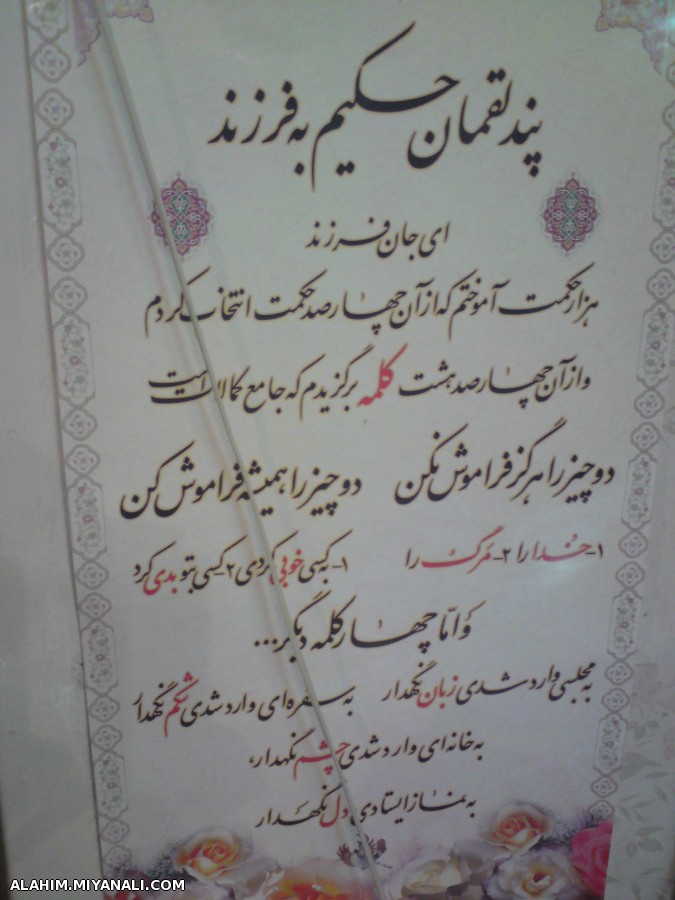 پند لقمان حکیم به فرزند
ای جان فرزند
هزار حکمت آموختم که از آن چهارصد حکمت انتخاب کردم
و از آن چهارصد هشت کلمه برگزیدم که جامع کمالات است
دو چیز را هرگز فراموش نکن
دو چیز را همیشه فراموش کن
۱- خدا را ۲- مرگ را
۱- به کسی خوبی کردی ۲ کسی بتو بدی کرد
وَ امّا چهار کلمه دیگر...
به مجلسی وارد شدی زبان نگهدار
به سفره‌ای وارد شدی شکم نگهدار
به خانه‌ای وارد شدی چشم نگهدار،
به نماز ایستادی دل نگهدار
ALAHIM.MIYANALI.COM